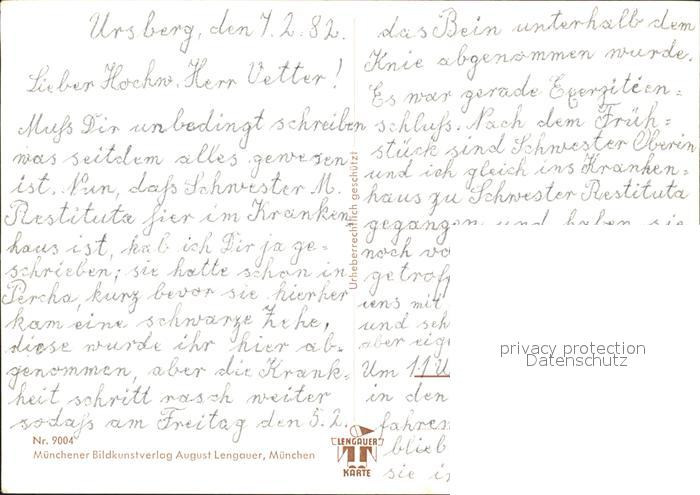 Ursberg, den 7.2.82.
Lieber Hochw. Herr Vetter!
Muß Dir unbedingt schreiben
was seitdem alles gewesen
ist. Nun, daß Schwester M.
Restituta hier im Kranken
haus ist, hab ich Dir ja ge-
schrieben; sie hatte schon in
Percha, kurz bevor sie hierher
kam eine schwarze Zehe,
diese wurde ihr hier ab-
genommen, aber die Krank-
heit schritt rasch weiter
sodaß am Freitag den 5.2.
das Bein unterhalb dem
Knie abgenommen wurde.
Es war gerade Exerzitien=
schluß. Nach dem Früh=
stück sind Schwester Oberin
und ich gleich ins Kranken=
haus zu Schwester Restituta
gegangen und haben sie
noch
getrof
iens mit
und seh
aber eig
Um 11 U
in den
fahren
blieb
sie
Urheberrechtlich geschützt
Nr. 9004
Münchener Bildkunstverlag August Lengauer, München
LENGAUER
KARTE
privacy protection
Datenschutz